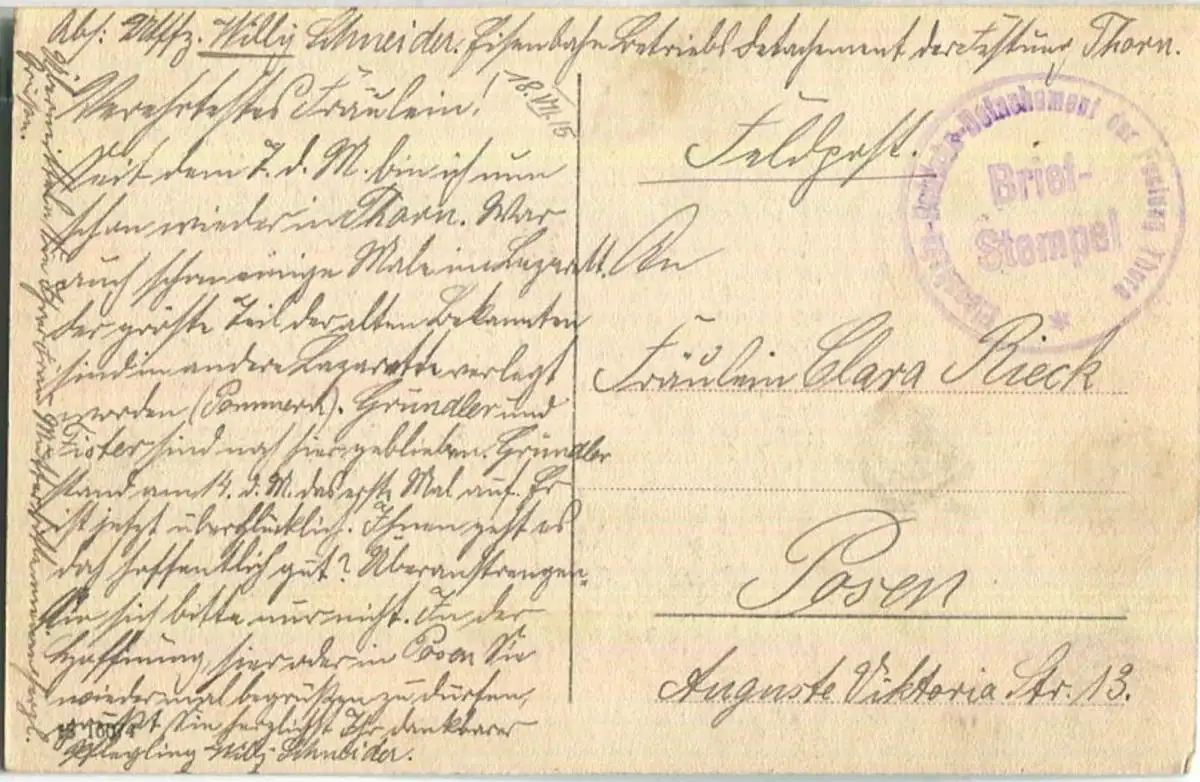 Abs: Uffz. Willy Schneider. Eisenbahn Betriebs Detachement der Festung Thorn.
18.VII.15
Verehrtestes Fräulein!
Seit dem 7. d. M. bin ich nun
schon wieder in Thorn. War
auch schon einige Male im Lazarett.
Der größte Teil der alten Bekannten
sind in andere Lazarette verlegt
worden (Pommern). Gründler und
sind noch hier geblieben. Gründler
stand am 14. d. M. das erste Mal auf. Er
ist jetzt überglücklich. Ihnen geht es
doch hoffentlich gut? Überanstrengen
Sie sich bitte nur nicht. In der
Hoffnung, hier oder in Posen Sie
wieder mal begrüßen zu dürfen,
grüßt Sie herzlichst Ihr dankbarer
Pflegling Willy Schneider.
Übermitteln Sie Ihrer Frau Mutter bitte meine
Grüße.
Feldpost.
Eisenbahn-Betriebs-Detachement der Festung Thorn
Brief-
Stempel
An
Fräulein Clara Rieck
Posen
Auguste Viktoria Str. 13.